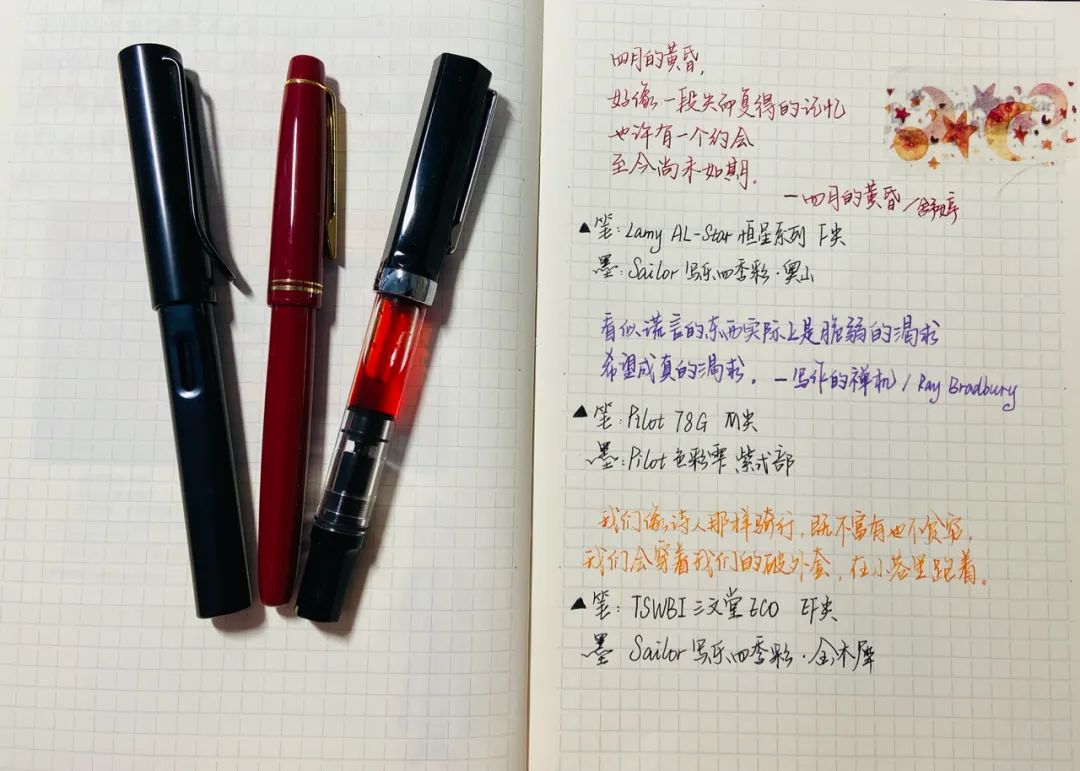 四月的黄昏,
好像一段失而复得的记忆
也许有一个约会
至今尚未如期.
—四月的黄昏/舒婷
▲笔:Lamy AL-Star 恒星系列 F尖
墨:Sailor 写乐四季彩·奥山
看似谎言的东西实际上是脆弱的渴求
希望成真的渴求. —写作的禅机/Ray Bradbury
▲笔:Pilot 78G M尖
墨:Pilot 色彩雫 紫式部
我们像诗人那样骑行,既不富有也不贫穷,
我们会穿着我们的破外套,在小巷里跑着。
▲笔:TSWBI 三文堂 ECO EF尖
墨 Sailor 写乐四季彩·金木犀